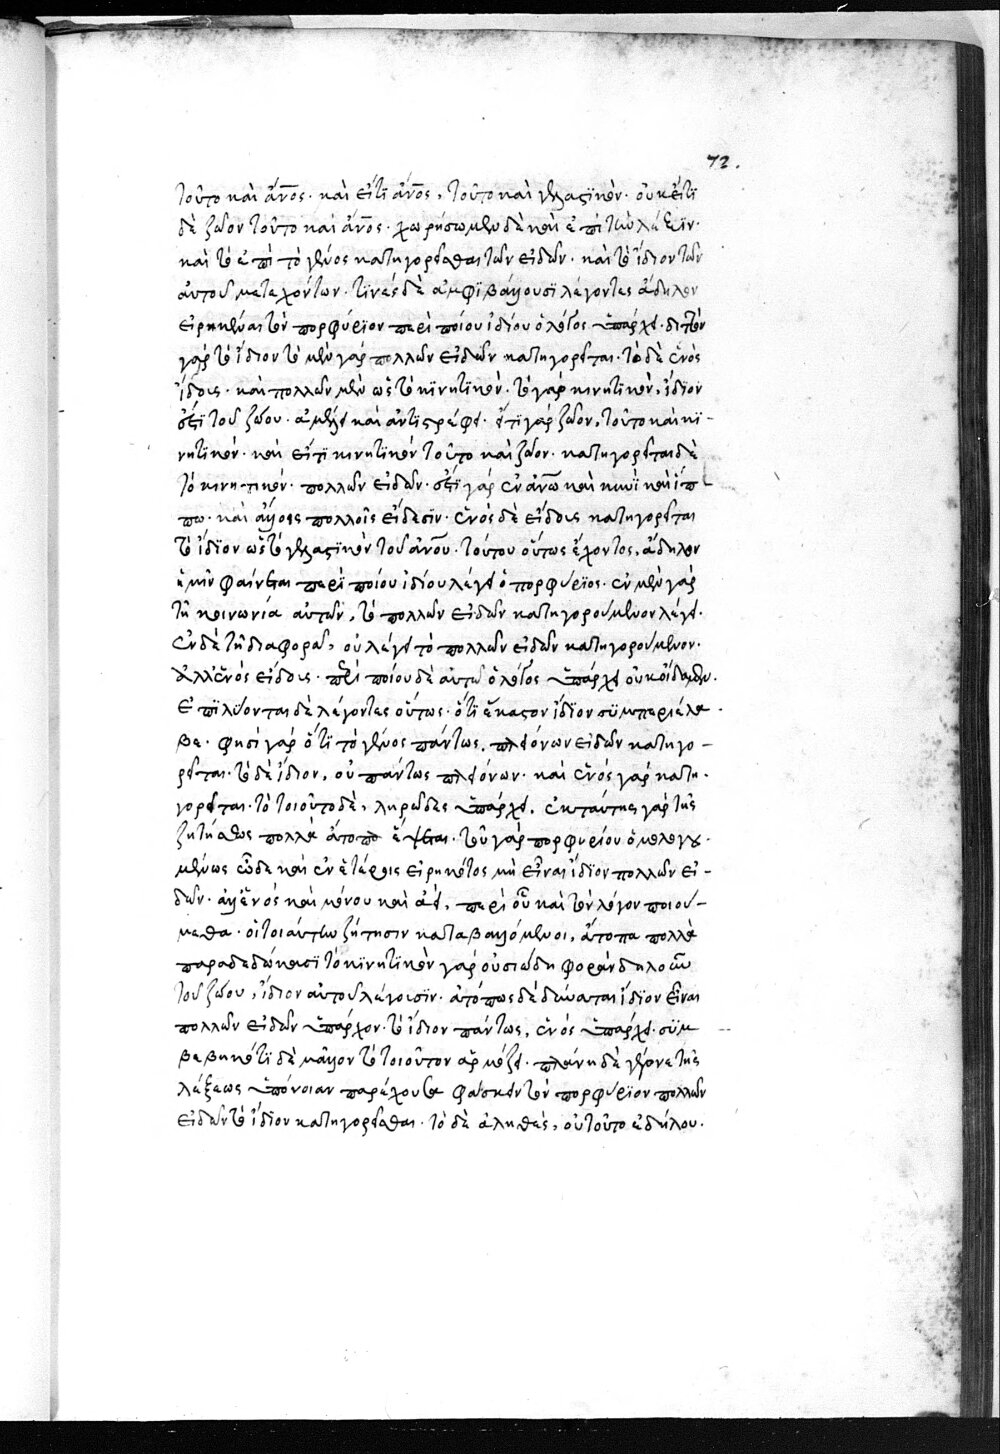 72.
τοῦτο καὶ ἄνος· καὶ εἴτι ἄνος, τοῦτο καὶ γελαστϊκόν· οὐκ εἴτι
δὲ ζῶον τοῦτο καὶ ἄνος· χωρήσωμεν δὲ καὶ ἐπὶ τὴν λέξϊν·
καὶ τὸ ἐπὶ τὸ γένος κατηγορεῖσθαι τῶν εἰδῶν· καὶ τὸ ἴδιον τῶν
αὐτοῦ μετεχόντων· τινὲς δὲ ἀμφϊβάλλουσϊ λέγοντες ἄδηλον
εἰρηκέναι τὸν πορφύρϊον περὶ ποίου ἰδίου ὁ λόγος ὑπάρχει· διττὸν
γάρ τὸ ἴδιον τὸ μὲν γάρ πολλῶν εἰδῶν κατηγορεῖται· τὸ δὲ ἑνός
εἴδους· καὶ πολλῶν μὲν ὡς τὸ κϊνητϊκόν· τὸ γάρ κινητϊκόν, ἴδϊον
ἐστϊ τοῦ ζώου· ἀμέλει καὶ ἀντιστρέφει· εἴ τι γάρ ζῶον, τοῦτο καὶ κϊ-
νητϊκόν· καὶ εἴτι κινητϊκόν τοῦτο καὶ ζῶον· κατηγορεῖται δὲ
τὸ κινητικόν· πολλῶν εἰδῶν· ἔστϊ γάρ ἐν ἀνω καὶ κυνὶ καὶ ἵπ
πω· καὶ ἄλλοις πολλοῖς εἴδεσϊν· ἑνός δὲ εἴδους κατηγορεῖται
τὸ ἴδϊον ὡς τὸ γελαστϊκόν τοῦ ἀνου· τούτου οὕτως ἔχοντος, ἄδηλον
ἡμῖν φαίνεται περὶ ποίου ἰδίου λέγει ὁ πορφύρϊος· ἐν μὲν γάρ
τῆ κοινωνία αὐτῶν, τὸ πολλῶν εἰδῶν κατηγορούμενον λέγει·
ἐν δὲ τῆ διαφορᾶ, οὐ λέγει τὸ πολλῶν εἰδῶν κατηγορούμενον·
ἀλλ' ἑνός εἴδους· περὶ ποίου δὲ αὐτῶ ὁ λόγος ὑπάρχει οὐκ οἴδαμεν·
ἐπϊλύονται δὲ λέγοντες οὕτως· ὅτι ἕκαστον ἴδϊον σϋμπεριέλα
βε· φησὶ γάρ ὅτϊ τὸ γένος πάντως, πλειόνων εἰδῶν κατηγο-
ρεῖται· τὸ δὲ ἴδιον, οὐ πάντως πλειόνων· καὶ ἑνός γάρ κατη-
γορεῖται· τὸ τοιοῦτο δὲ, ληρῶδες ὑπάρχει, ἐκ ταύτης γάρ τῆς
ζητήσεως πολλὰ ἄτοπα ἕψεται· τοῦ γάρ πορφυρίου ὁμολογου
μένως ὧδε καὶ ἐν ἑτέροις εἰρηκότος μὴ εἶναι ἴδϊον πολλῶν εἰ-
δῶν· ἀλλ' ἑνός καὶ μόνου καὶ ἀεὶ, περὶ οὗ καὶ τὸν λόγον ποιού-
μεθα· οἱ τοιαύτην ζήτησιν καταβαλλόμενοι, ἄτοπα πολλὰ
παραδεδώκασϊ τὸ κϊνητϊκὸν γάρ οὐσιώδη φορὰν δηλοῦν
τοῦ ζώου, ἴδιον αὐτοῦ λέγουσϊν· ἀτόπως δὲ δύναται ἴδϊον εἶναι
πολλῶν εἰδῶν ὑπάρχον· τὸ ἴδιον πάντως, ἑνός ὑπάρχει· σϋμ
βεβηκότϊ δὲ μᾶλλον τὸ τοιοῦτον ἁρμόζει· πλάνη δὲ γέγονε τῆς
λέξεως ὑπόνοιαν παρέχουσα φάσκειν τὸν πορφύρϊον πολλῶν
εἰδῶν τὸ ἴδϊον κατηγορεῖσθαι· τὸ δὲ ἀληθές, οὐ τοῦτο ἐδήλου·